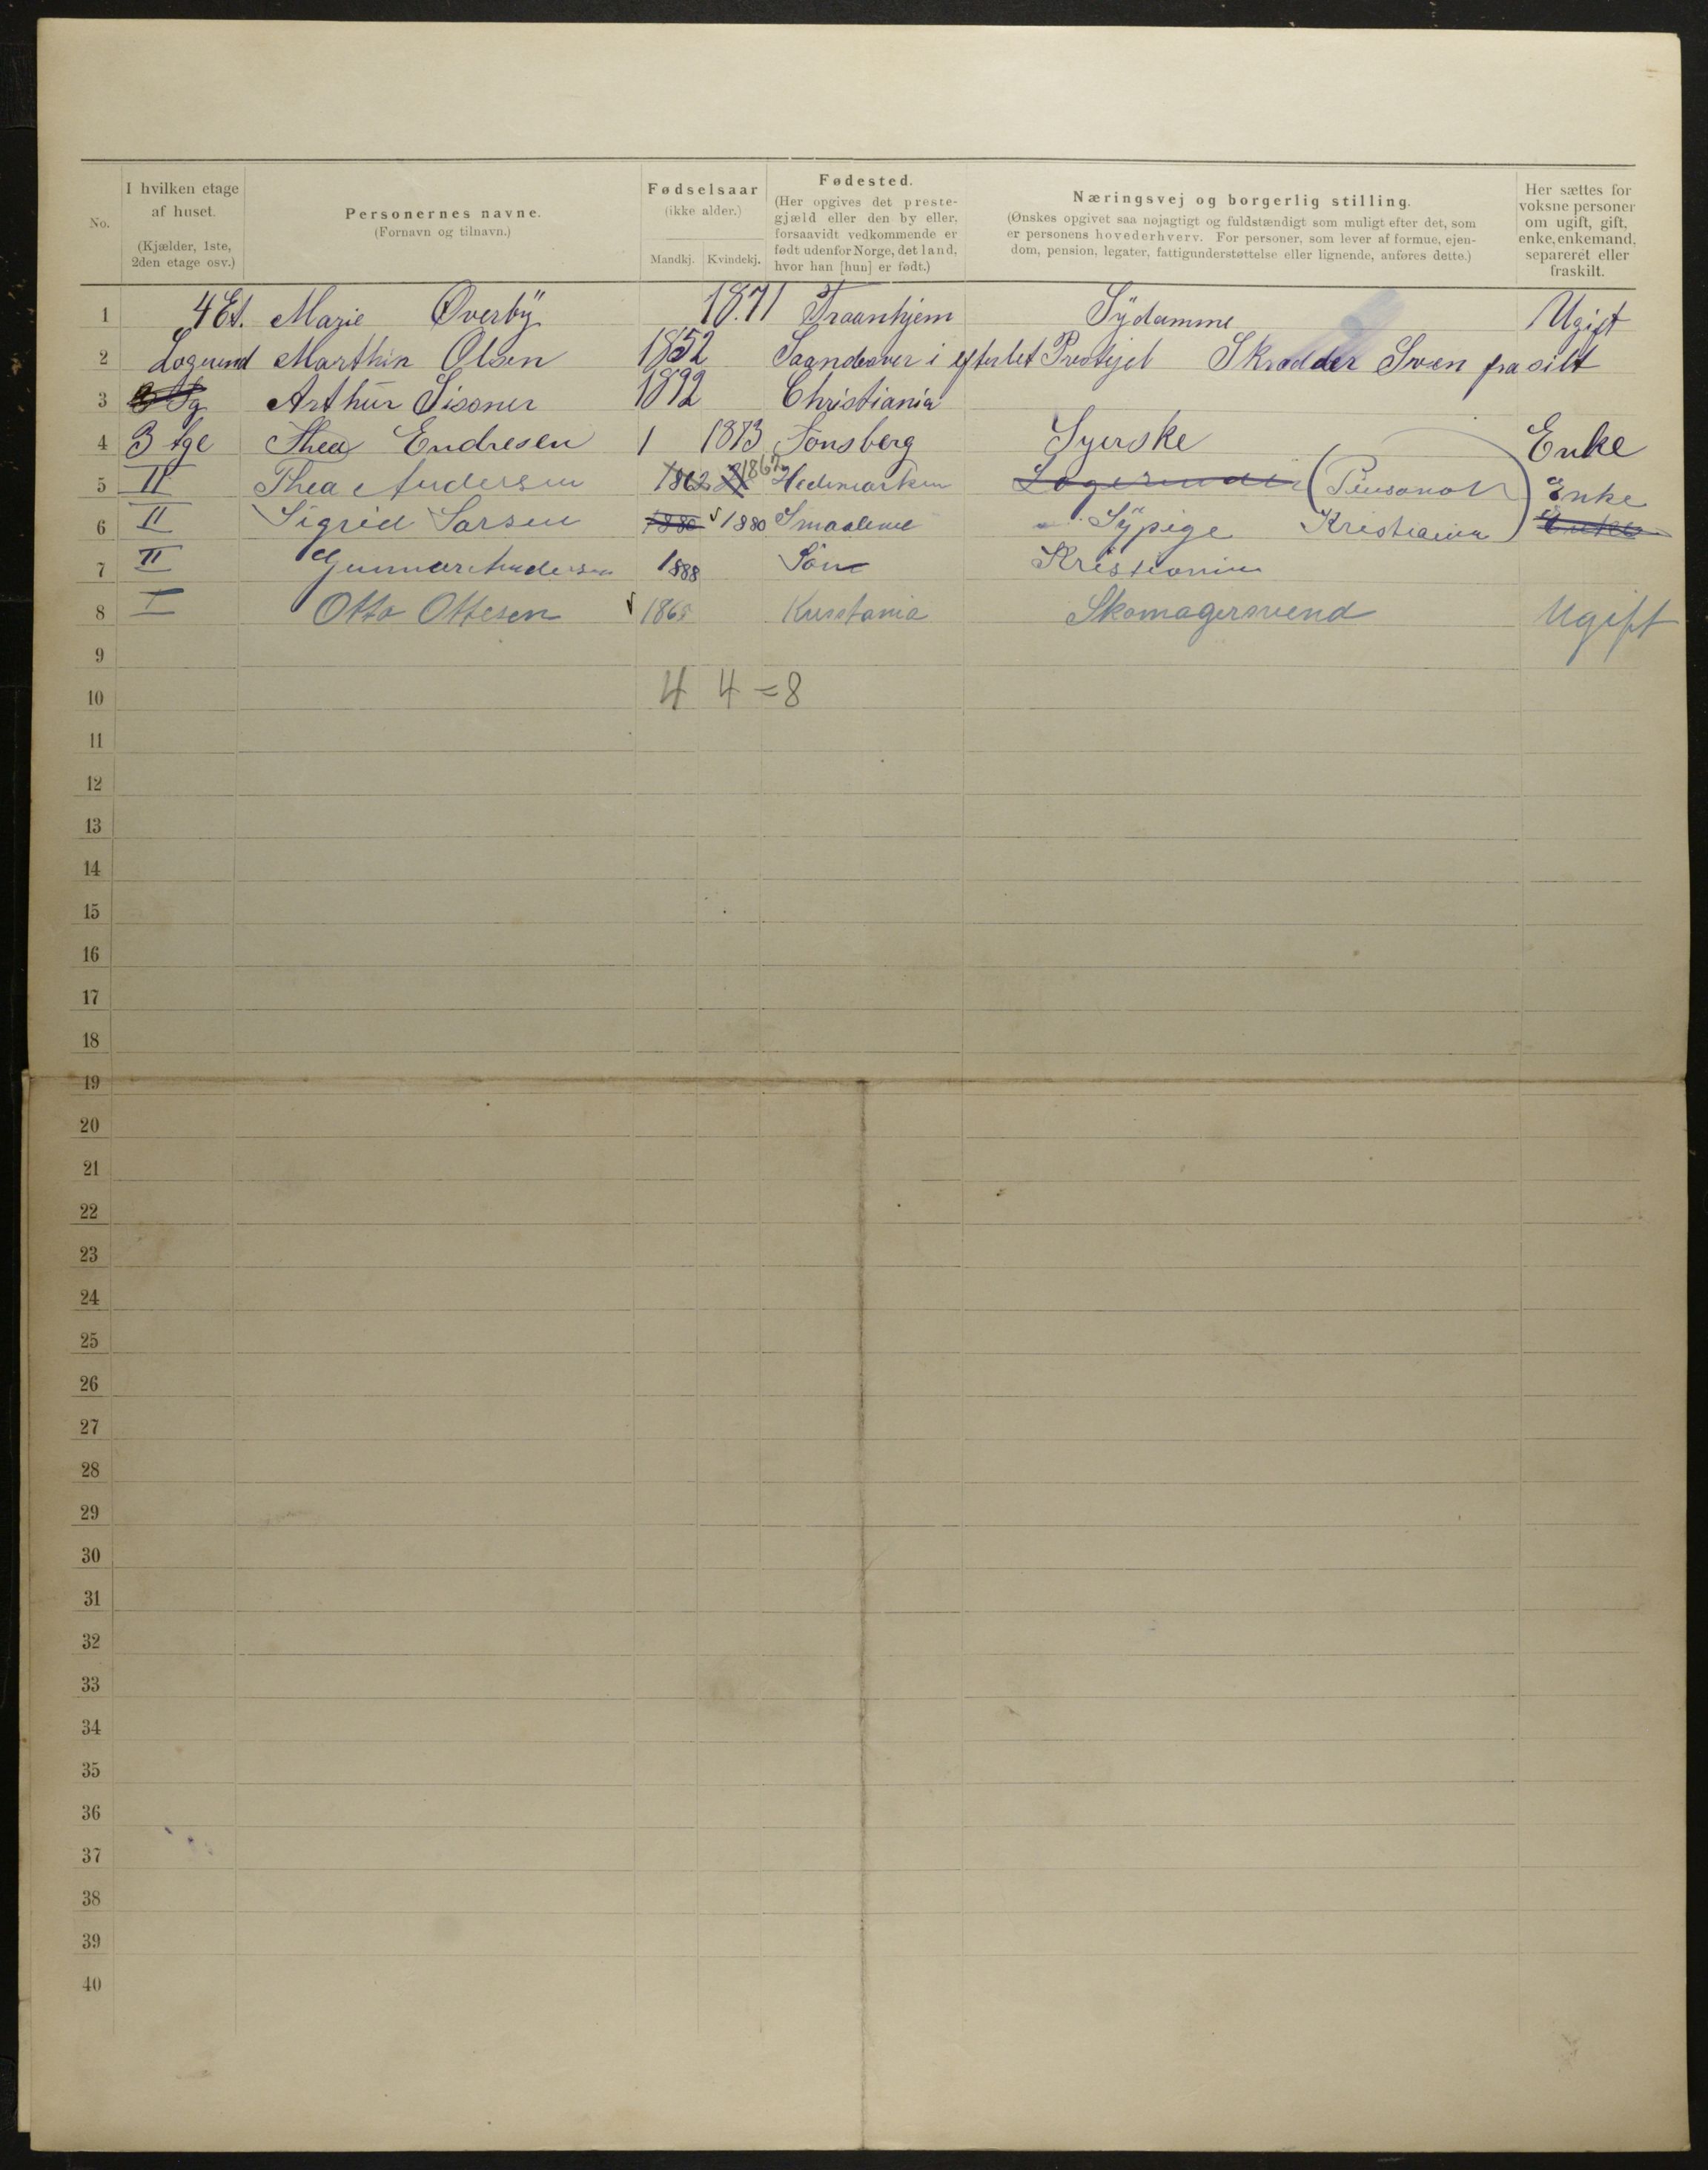 No. I hvilken etage af huset. (Kjælder, 1ste, 2den etage osv.) Personernes navne. (Fornavn og tilnavn.) Fødselsaar (ikke alder.) Mandkj. Kvindekj. Fødested. (Her opgives det prestegjæld eller den by eller, forsaavidt vedkommende er født udenfor Norge, det land, hvor han [hun] er født.) Næringsvej og borgerlig stilling. (Ønskes opgivet saa nøjagtigt og fuldstændigt som muligt efter det, som er personens hovederhverv. For personer, som lever af formue, ejendom, pension, legater, fattigunderstøttelse eller lignende, anføres dette.) Her sættes for voksne personer om ugift, gift, enke, enkemand, separeret eller fraskilt.
1 4 Et. Marie Øverbÿ 1871 Sÿdamme Ugift
2 Logerend Marthin Olsen 1852 i Skrædder Sven
3 Arthur 1892 Christiania
4 3 tge Thea Endresen 1 1873 Tønsberg Syerske Enke
5 II Thea Andersen 1862 1867 Hedemarken Logerende Enke
6 II Sigrid Larsen 1880 1880 Smaalene Sÿpige Kristiania Enke
7 II Gunnar Andersen 1888 Søn Kristiania
8 I Otto Ottesen Skomagersvend Ugift
9
10 4 4 = 8
11
12
13
14
15
16
17
18
19
20
21
22
23
24
25
26
27
28
29
30
31
32
33
34
35
36
37
38
39
40